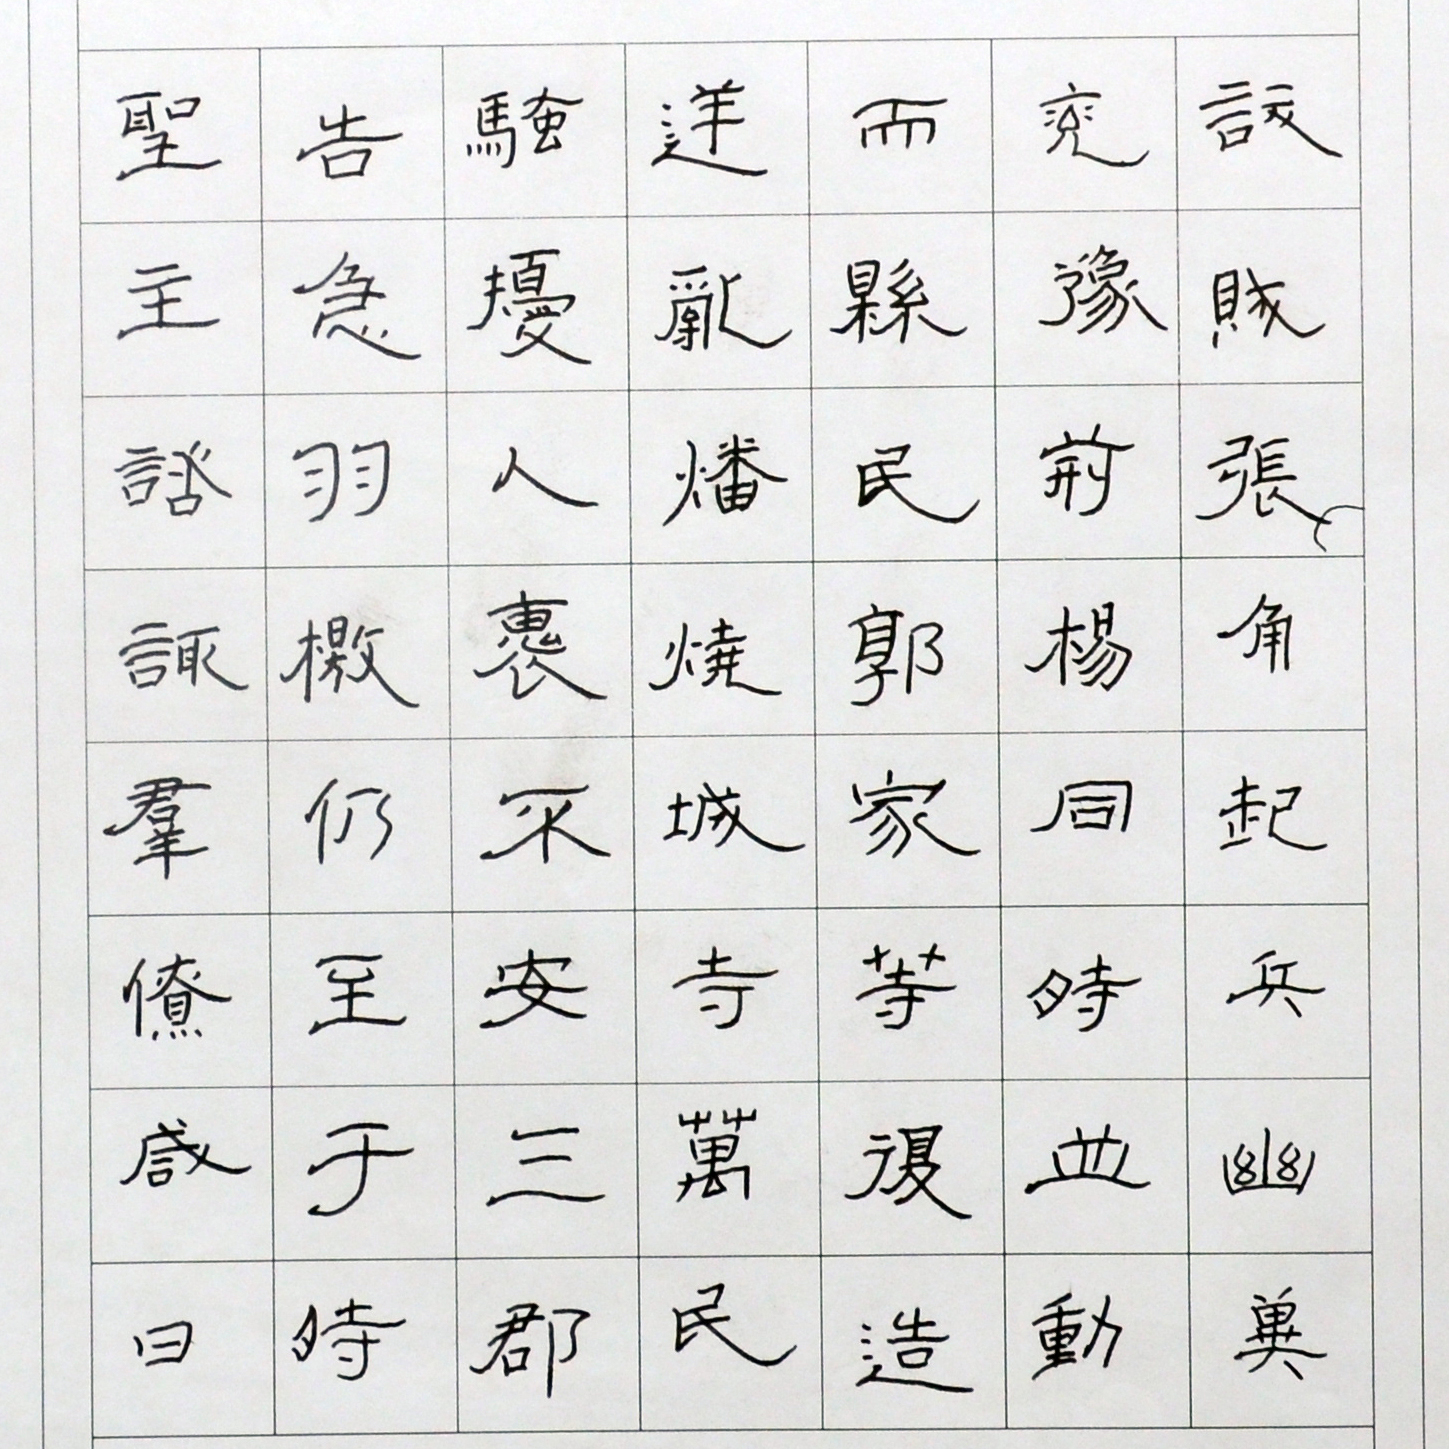 訞賊張角起兵幽冀
兖豫荊楊同時並動
而縣民郭家等復造
逆亂燔燒城寺萬民
騷擾人裹不安三郡
告急羽檄仍至于時
聖主諮諏羣僚咸曰